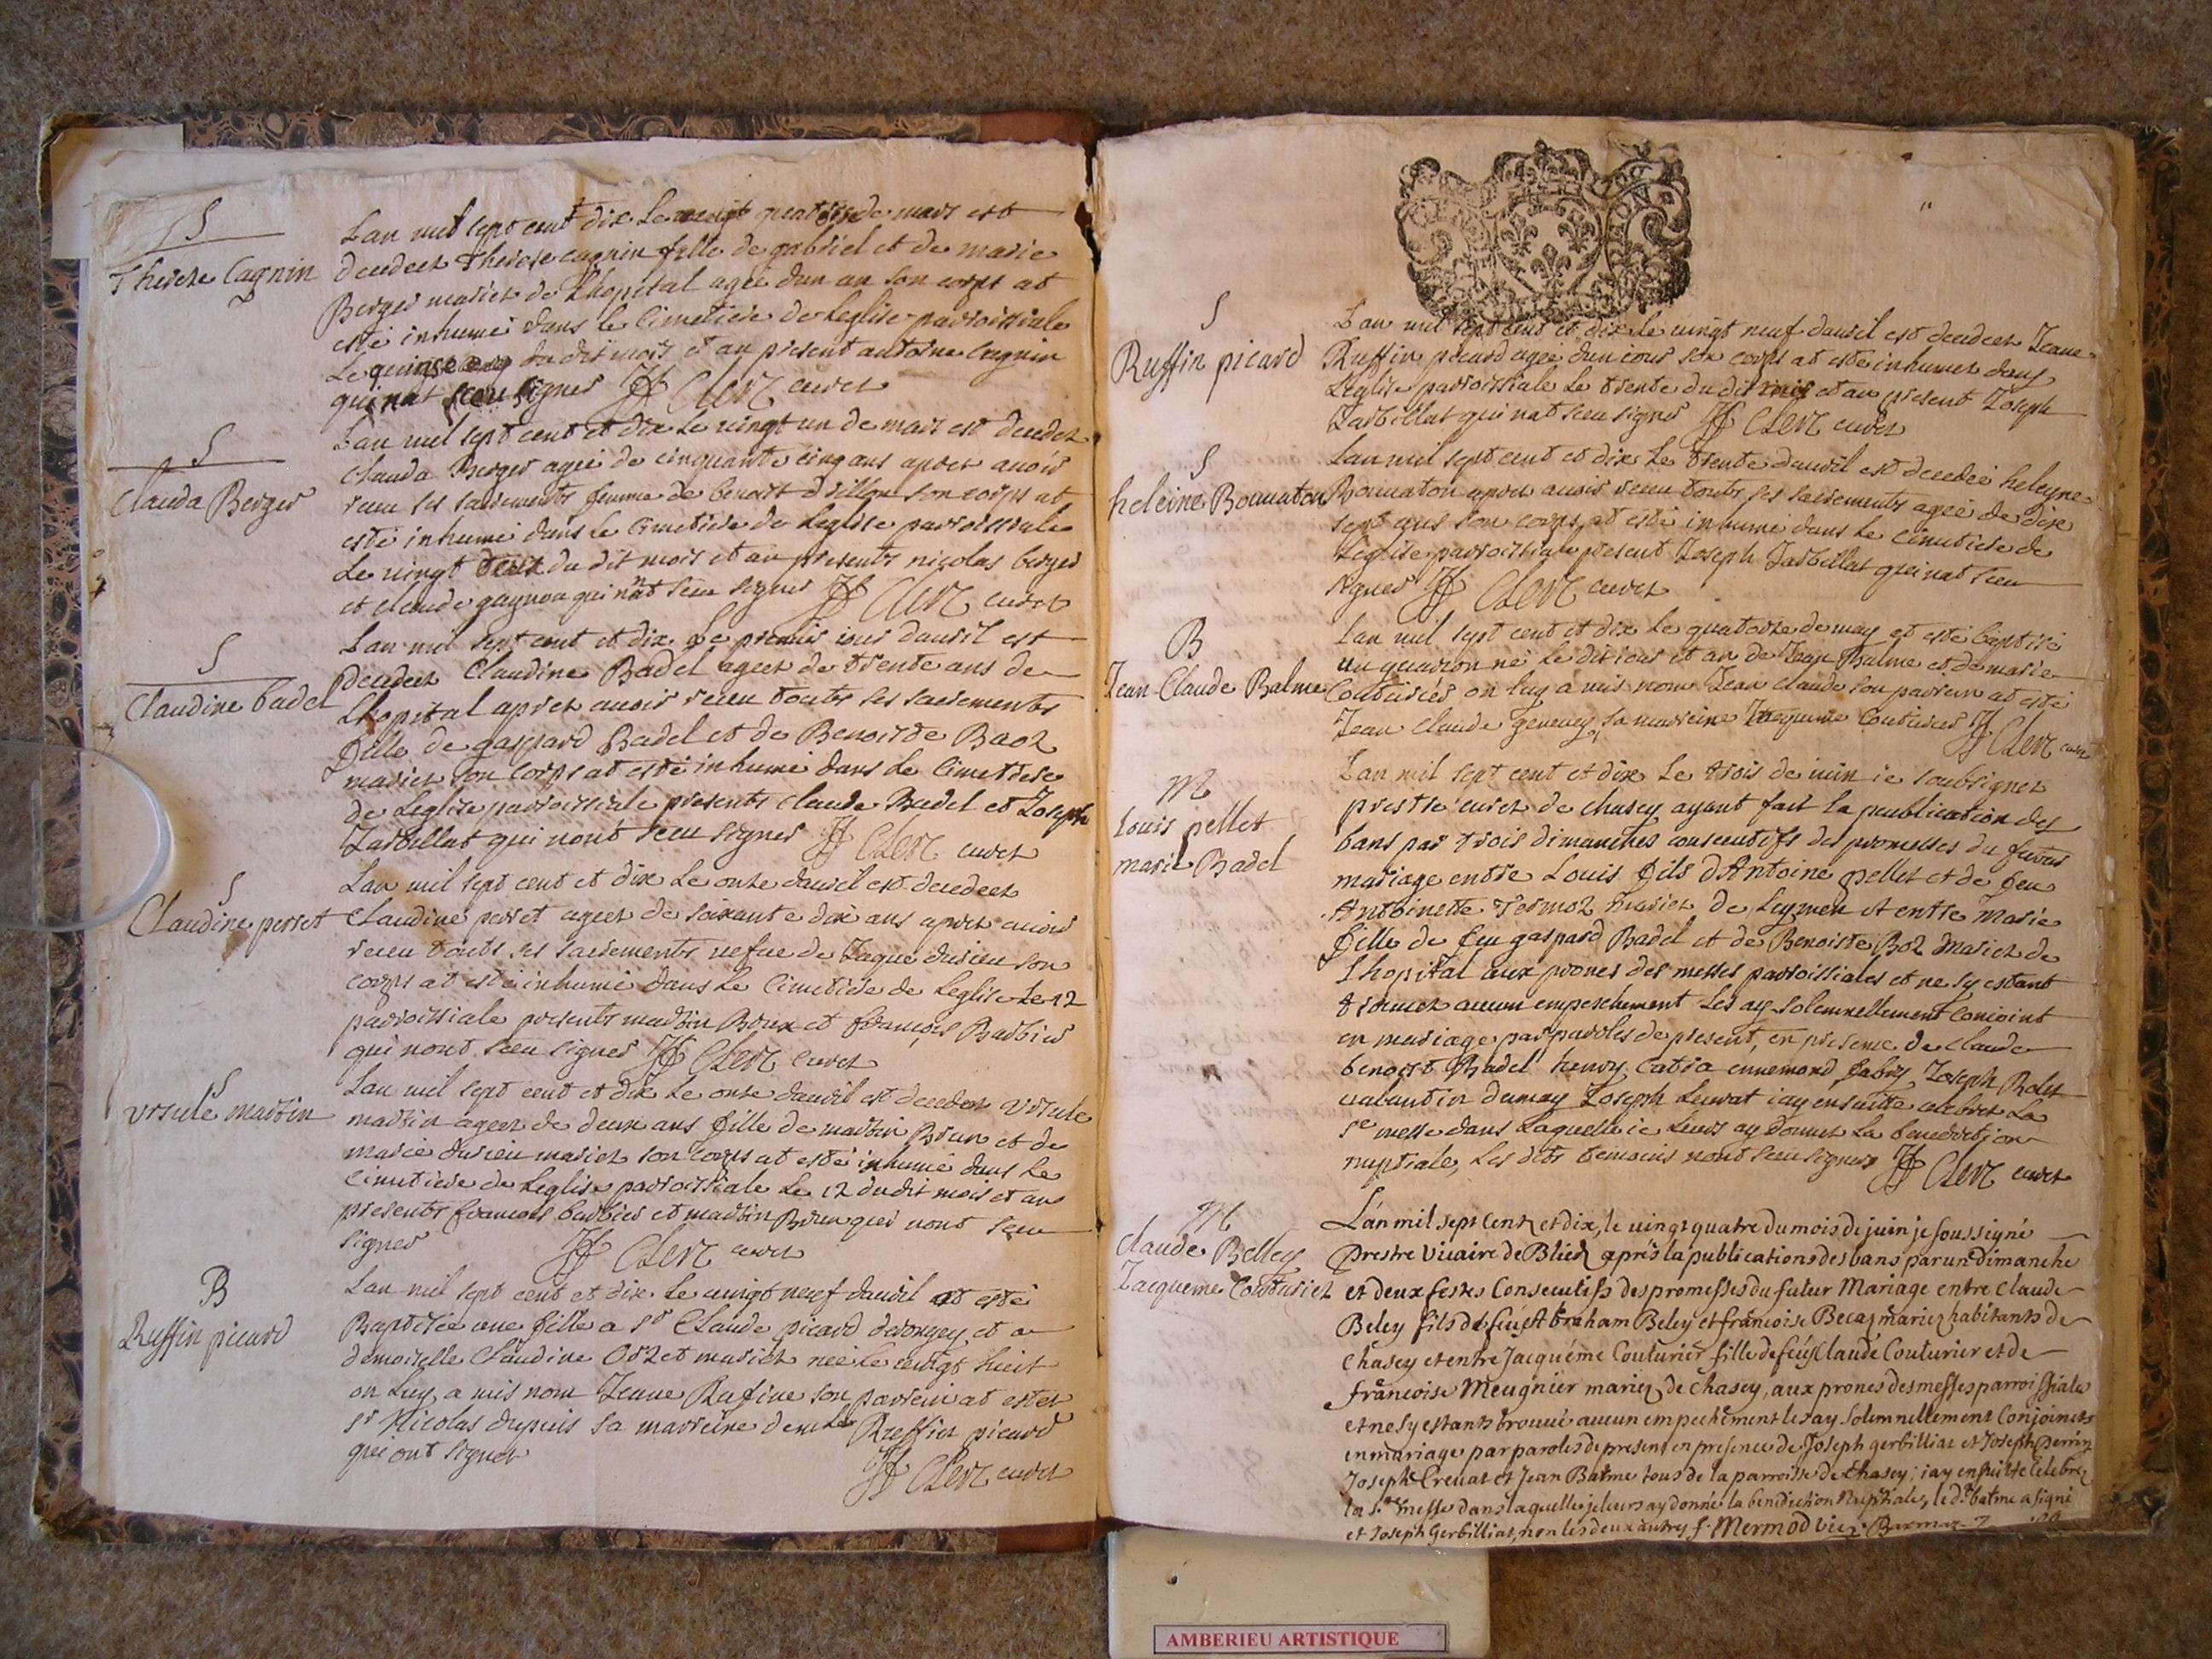 S
Therese Cagnin
Lan mil sept cent dix Le quatorze de mars est
decedeet Therese cagnin fille de gabriel et de marie
Berger mariez de Lhopital agee dun an son corps at
esté inhumé dans le Cimetiere de Leglise parroissiale
Le quinze du dit mois et an present antoine Cagnin
qui nat sceu signer JF CLerc curez
S
Clauda Berger
Lan mil sept cent et dix Le vingt un de mars est decedez
Clauda Berger agee de cinquante cinq ans aprez auoir
receu ses sacrements femme de benoit drillon son corps at
esté inhumé dans le Cimetiere de Leglise parroissiale
Le vingt deux du dit mois et an presents nicolas berger
et claude gagnon qui nont sceu signer JF CLerc curez
S
Claudine badel
Lan mil sept cent et dix Le premier iour dauril est
decedeez Claudine Badel ageez de trente ans de
Lhopital aprez auoir receu touts ses sacrements
fille de gaspard Badel et de Benoiste Baoz
mariez son corps at esté inhumé dans Le Cimetiere
de Leglise parroissiale presents Claude Badel et Joseph
Jarbillat qui nont sceu signer JF CLerc curez
S
Claudine perret
Lan mil sept cent et dix Le onze dauril est decedeez
Claudine perret ageez de soixante dix ans aprez auoir
receu touts ses sacrements uefue de Jaque durieu son
corps at esté inhumé dans Le Cimetiere de Leglise Le 12
parroissiale presents martin Brun et francois Barbier
qui nont sceu signer JF CLerc curez
S
ursule martin
Lan mil sept cent et dix Le onze dauril est decedez ursule
martin ageez de deux ans fille de martin Brun et de
marie durieu mariez son corps at esté inhumé dans Le
Cimetiere de Leglise parroissiale Le 12 du dit mois et an
presents francois barbier et martin Brun qui nont sceu
signer JF CLerc curez
B
Ruffin picard
Lan mil sept cent et dix Le vingt neuf dauril at esté
Baptisée une fille a sr Claude picard et a
demoiselle Claudine Orset mariez née le vingt huit
on Luy a mis nom Jeane Rufine son parrein at estez
sr Nicolas dupuis sa marreine demlle Ruffin picard
qui ont signez
JF CLerc curez
S
Ruffin picard
Lan mil sept cent et dix Le vingt neuf dauril est decedeez Jeane
Ruffin picard agee dun iour son corps at esté inhumez dans
Leglise parroissiale Le trente du dit mois et an present Joseph
Jarbillat qui nat sceu signer JF CLerc curez
S
heleine Boumaton
Lan mil sept cent et dix Le trente dauril est decedeé heleyne
Boumaton aprez auoir receu touts ses sacrements agee de dix
sept ans son corps at esté inhumé dans Le Cimetiere de
Leglise parroissiale present Joseph Jarbillat qui nat sceu
signer JF CLerc curez
B
Jean Claude Balme
Lan mil sept cent et dix Le quatorze de may at esté baptisé
un garcon né Le dit iour et an de Jean Balme et de marie
Couturier on luy a mis nom Jean Claude son parrein at esté
Jean Claude geneuey sa marreine Jaqueme Couturier JF CLerc curez
M
Louis pellet
marie Badel
Lan mil sept cent et dix Le trois de iuin ie soubsignez
prestre curez de chasey ayant fait la publication des
bans par trois dimanches consecutifs des promesses du futur
mariage entre Louis fils dAntoine pellet et de feu
Antoinette Termoz mariez de Leymen et entre Marie
fille de feu gaspard Badel et de Benoiste Boz mariez de
Lhopital aux prones des messes parroissiales et ne sy estant
trouuez aucun empeschement Les ay solemnellement conioint
en mariage par paroles de present, en presence de claude
benoist Badel henry Catia ennemond fabry Joseph Rolet
valantin dumay Joseph Leurat iay ensuitte celebrez La
Ste messe dans Laquelle ie Leurs ay donnez La benediction
nuptiale, Les dits temoins nont sceu signer JF CLerc curez
M
Claude Belley
Jacqueme Couturiez
L'an mil sept Centz et dix, le uingt quatre du mois de juin je soussigné
prestre vicaire de Blied après la publications des bans par un Dimanche
et deux festes Consecutifs des promesses du futur Mariage entre Claude
Beley fils de feu Abraham Beley et francoise Becaz mariez habitants de
Chasey et entre Jacquéme Couturier fille de feu Claude Couturier et de
francoise Meugnier mariez de Chasey, aux prones des messes parroissiales
et ne sy estants trouué aucun empechement les ay solemnellement Conjoints
en mariage par paroles de present en presence de Joseph gerbilliat et Joseph perrin
Joseph Creuat et Jean Balme tous de la parroisse de Chasey; iay ensuitte Celebrez
la ste messe dans laquelle je leurs ay donné la benediction Nuptiale, le dt balme a signé
et Joseph Gerbilliat, non les deux autres f. Mermod vic.
AMBERIEU ARTISTIQUE